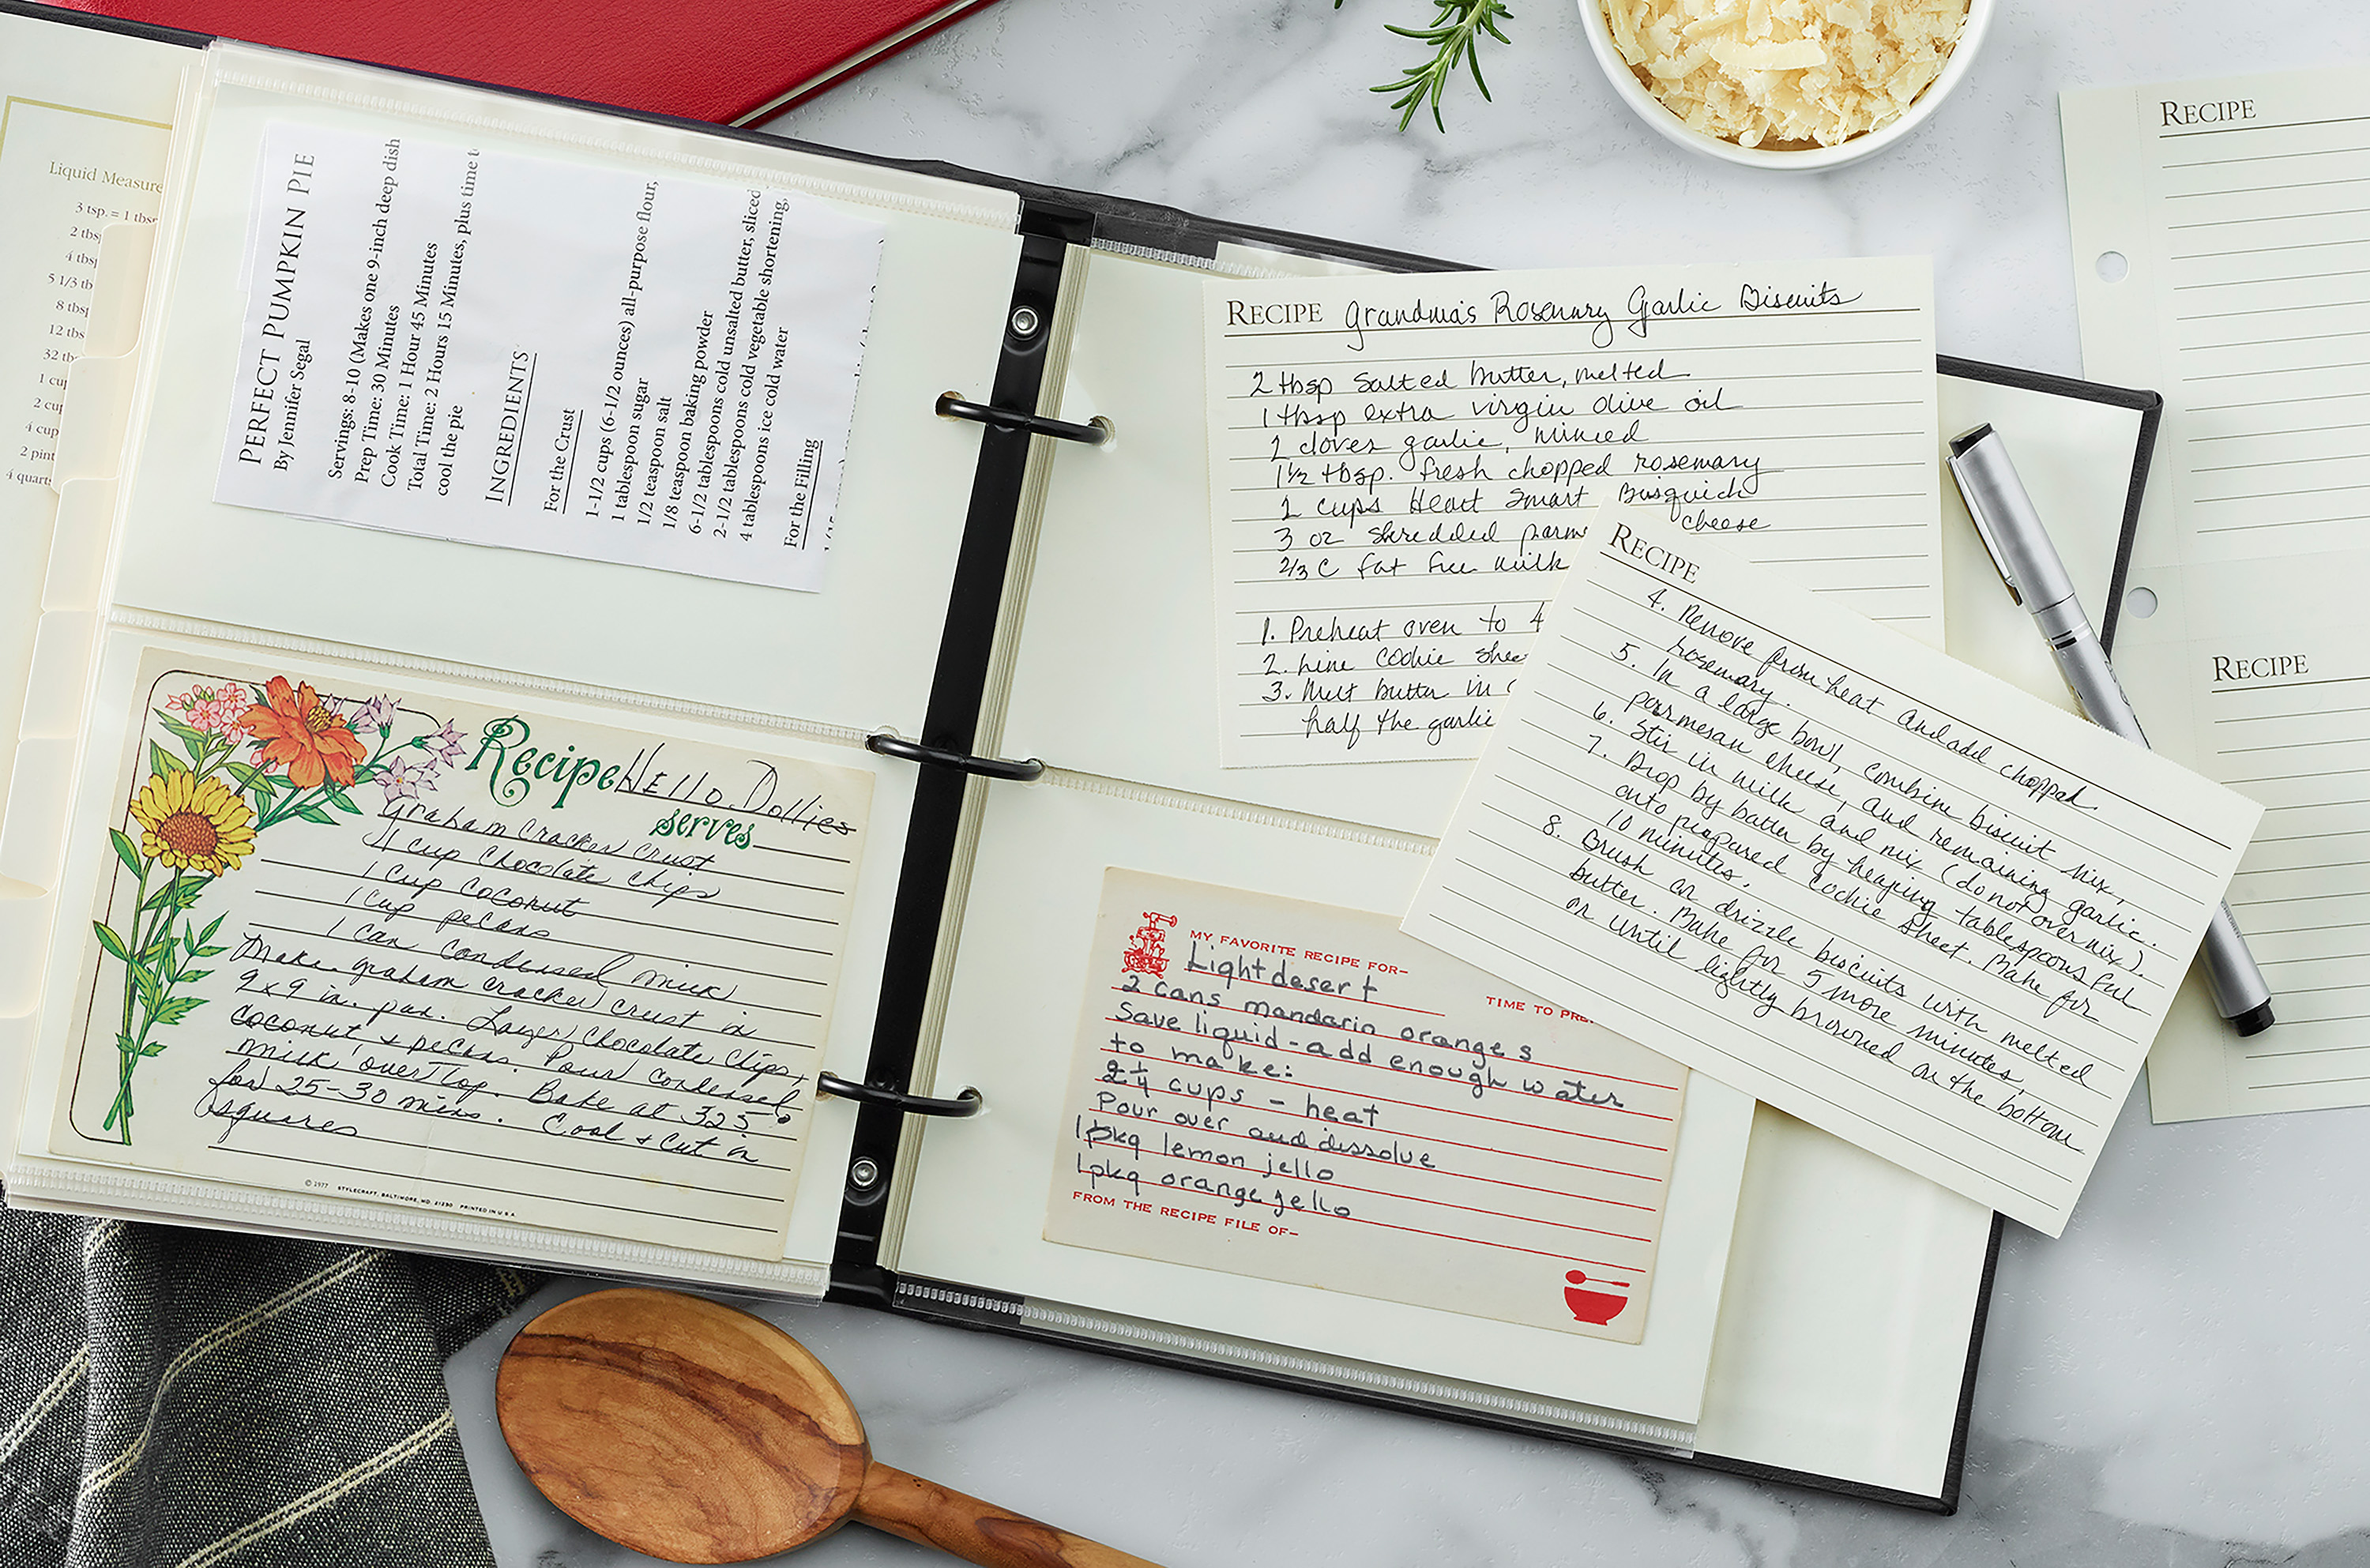 Liquid Measure
3 tsp. = 1 tbsp
2 tbsp
4 tbsp
5 1/3 tb
8 tbsp
12 tbs
32 tb
1 cup
2 cup
4 cup
2 pint
4 quart
PERFECT PUMPKIN PIE
By Jennifer Segal
Servings: 8-10 (Makes one 9-inch deep dish
Prep Time: 30 Minutes
Cook Time: 1 Hour 45 Minutes
Total Time: 2 Hours 15 Minutes, plus time t
cool the pie
INGREDIENTS
For the Crust
1-1/2 cups (6-1/2 ounces) all-purpose flour,
1 tablespoon sugar
1/2 teaspoon salt
1/8 teaspoon baking powder
6-1/2 tablespoons cold unsalted butter, sliced
2-1/2 tablespoons cold vegetable shortening,
4 tablespoons ice cold water
For the Filling
Recipe Hello Dollies
serves
graham cracker crust
1 cup chocolate chips
1 cup coconut
1 cup pecans
1 can condensed milk
Make graham cracker crust in
9x9 in. pan. Layer chocolate chips,
coconut + pecans. Pour condensed
milk over top. Bake at 325°
for 25-30 mins. Cool + cut in
squares
© 1977 STYLECRAFT, BALTIMORE, MD. 21230 PRINTED IN U.S.A.
RECIPE Grandma's Rosemary Garlic Biscuits
2 tbsp salted butter, melted
1 tbsp extra virgin olive oil
2 cloves garlic, minced
1½ tbsp. fresh chopped rosemary
2 cups Heart Smart Bisquick
3 oz shredded parm cheese
2/3 c fat free milk
1. Preheat oven to 4
2. Line cookie shee
3. Melt butter in
half the garlic
RECIPE
4. Remove from heat and add chopped
rosemary.
5. In a large bowl, combine biscuit mix,
parmesan cheese, and remaining garlic.
6. Stir in milk and mix (do not overmix).
7. Drop by batter by heaping tablespoons ful
onto prepared cookie sheet. Bake for
10 minutes.
8. Brush or drizzle biscuits with melted
butter. Bake for 5 more minutes,
or until lightly browned on the bottom
MY FAVORITE RECIPE FOR-
Light desert
TIME TO PRE
2 cans mandarin oranges
Save liquid - add enough water
to make:
2¼ cups - heat
Pour over and dissolve
1 pkg lemon jello
1 pkg orange jello
FROM THE RECIPE FILE OF-
RECIPE
RECIPE